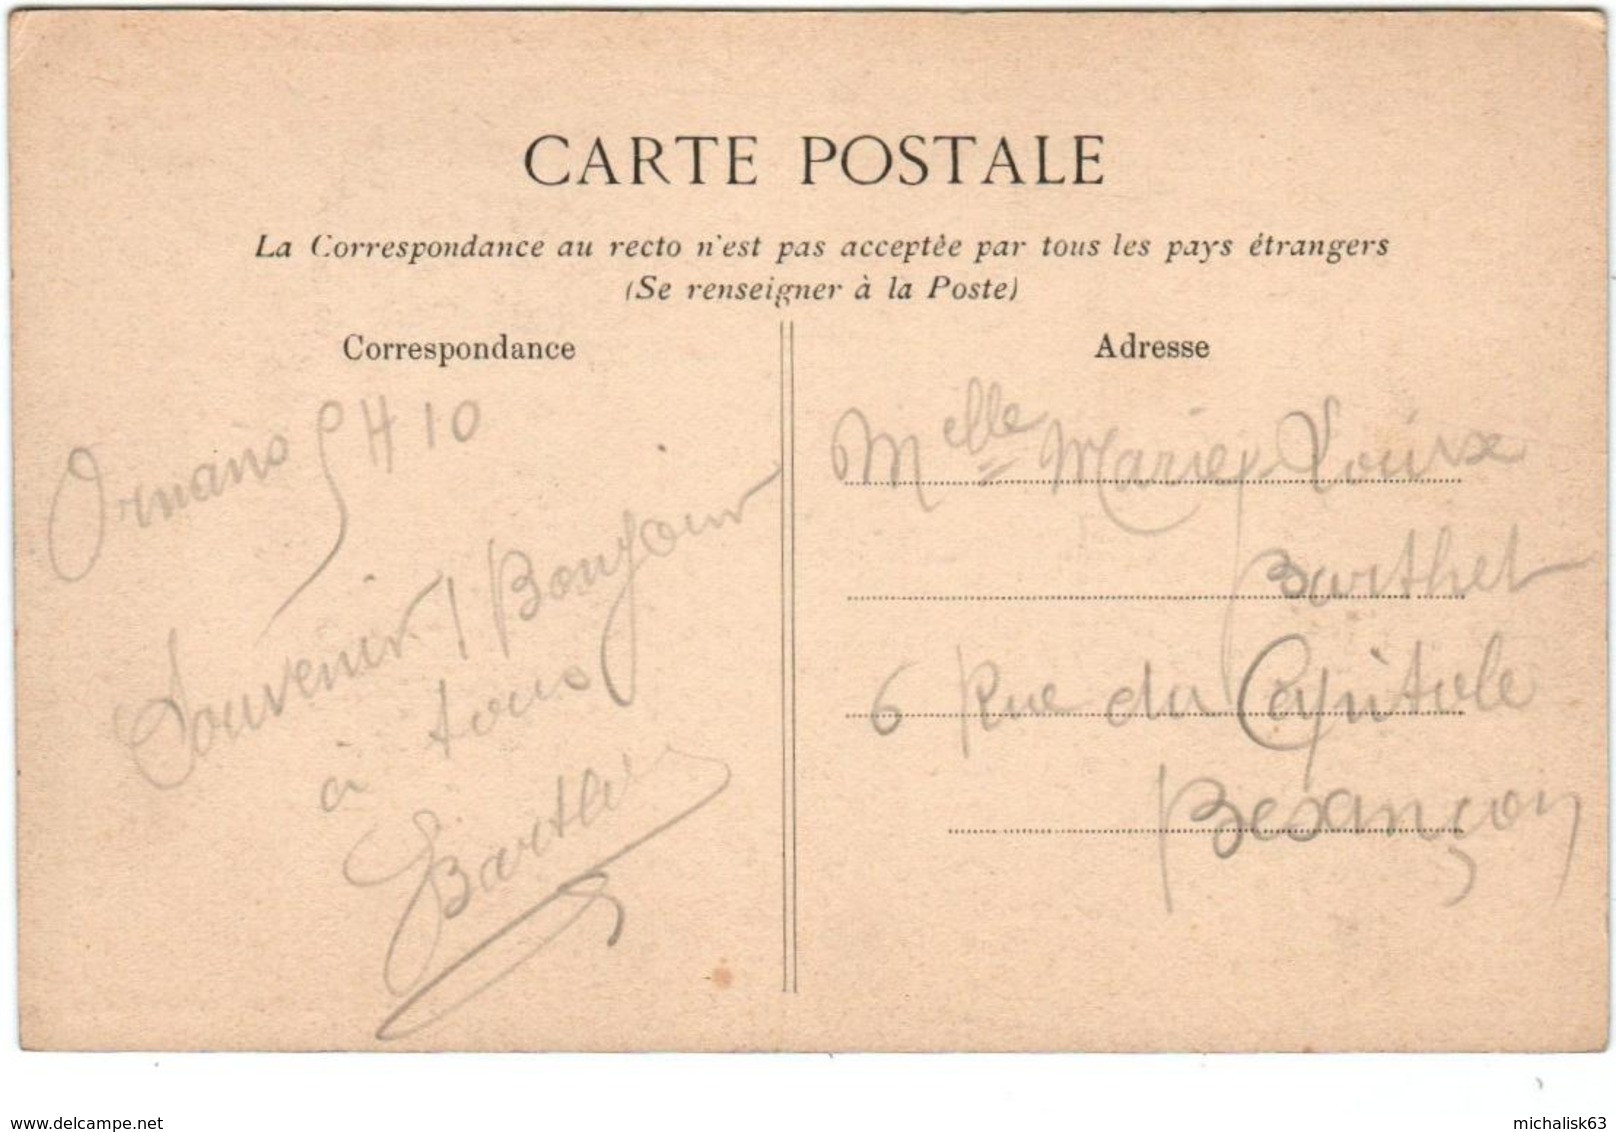 CARTE POSTALE
La Correspondance au recto n'est pas acceptée par tous les pays étrangers
(Se renseigner à la Poste)
Correspondance
Ornans 9 4 10
Souvenir ! Bonjour
à tous
Barthet
Adresse
Melle Marie Louise
Barthet
6 Rue du Capitole
Besançon
www.delcampe.net
michalisk63